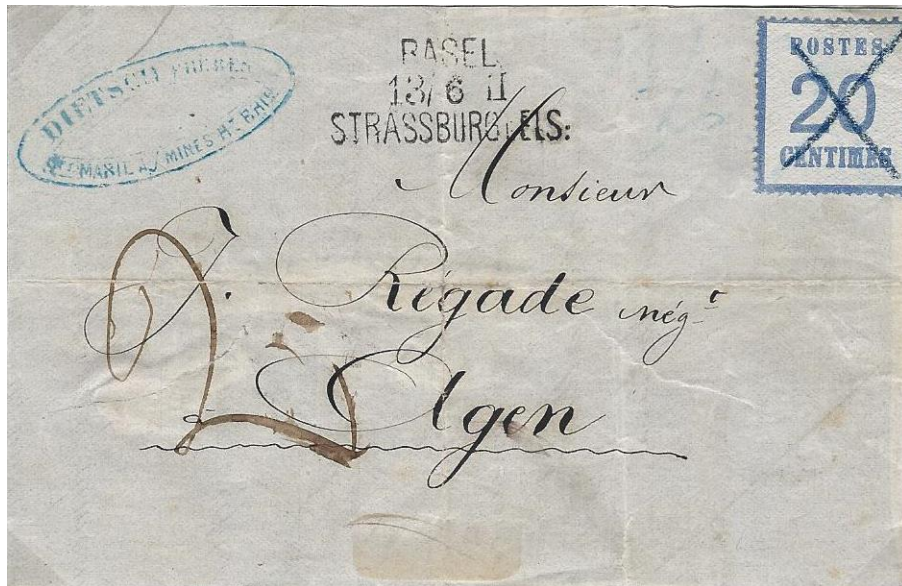 DIETSCH FRERES
STE MARIE A/ MINES HT RHIN
BASEL
13/6 II
STRASSBURG i ELS:
POSTES
20
CENTIMES
Monsieur
J. Régade négt
Agen
2